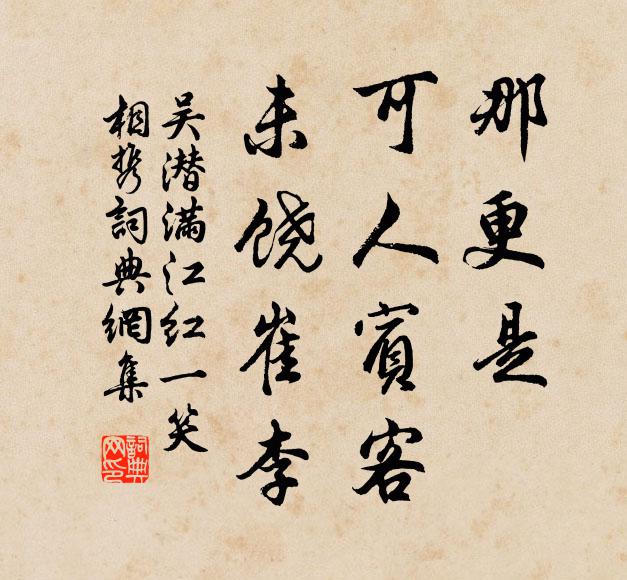 那更是
可人賓客
未饶崔李
吴潜满江红一笑
相携詞典網集
詞典网印